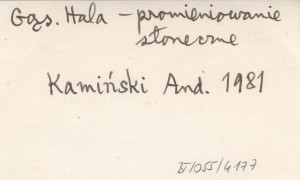 Gąs. Hala – promieniowanie
słoneczne
Kamiński And. 1981
IV/055/4177